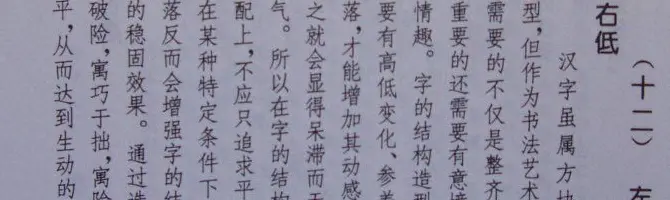 (十二) 左
右低
汉字虽属方块
型,但作为书法艺术
需要的不仅是整齐
重要的还需要有意境
情趣。字的结构造型
要有高低变化、参差
落,才能增加其动感
之就会显得呆滞而无
气。所以在字的结构
配上,不应只追求平
在某种特定条件下
落反而会增强字的结
的稳固效果。通过造
破险,寓巧于拙,寓险
平,从而达到生动的